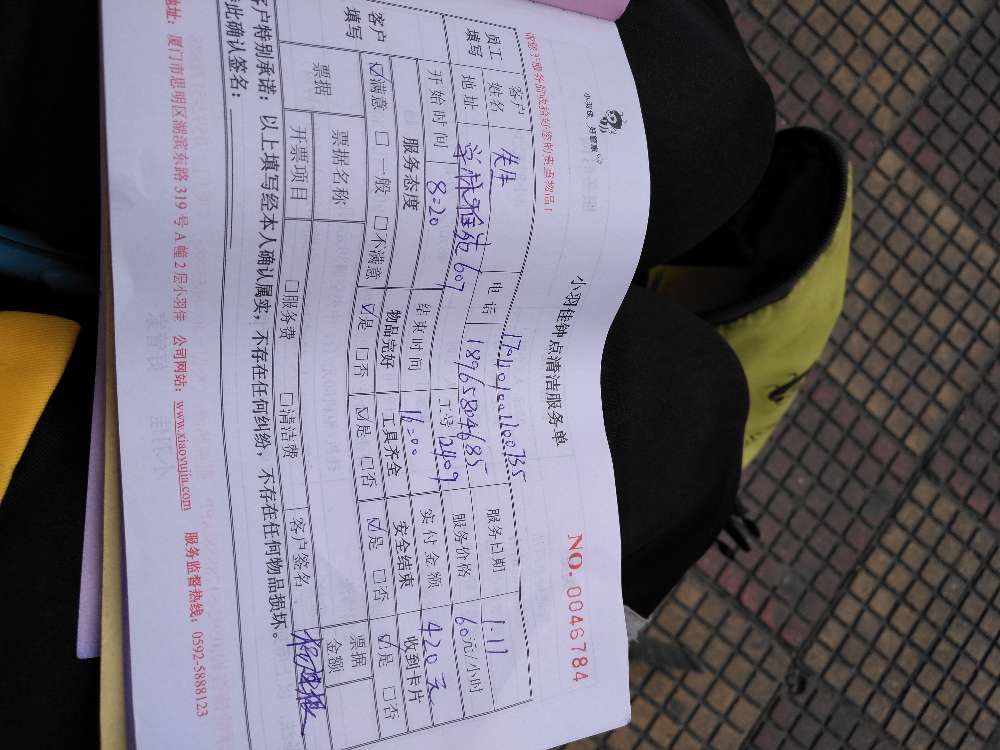 小羽佳 好管家
小羽佳钟点清洁服务单
NO. 0046784
请您于服务前收拾好您的贵重物品!
170401001100735
员工填写
客户姓名 先生 电话 18965804685 服务日期 1.11
地址 学林雅苑607 工号 2409 服务价格 60元/小时
开始时间 8:20 结束时间 16:00 实付金额 420元
客户填写
服务态度 物品完好 工具齐全 安全结束 收到卡片
☑满意 □一般 □不满意 ☑是 □否 ☑是 □否 ☑是 □否 ☑是 □否
票据 票据名称 票据金额
开票项目 □服务费 □清洁费 客户签名
客户特别承诺：以上填写经本人确认属实，不存在任何纠纷，不存在任何物品损坏。
此确认签名：
地址：厦门市思明区湖滨东路319号A幢2层小羽佳 公司网站：www.xiaoyujia.com 服务监督热线：0592-5888123